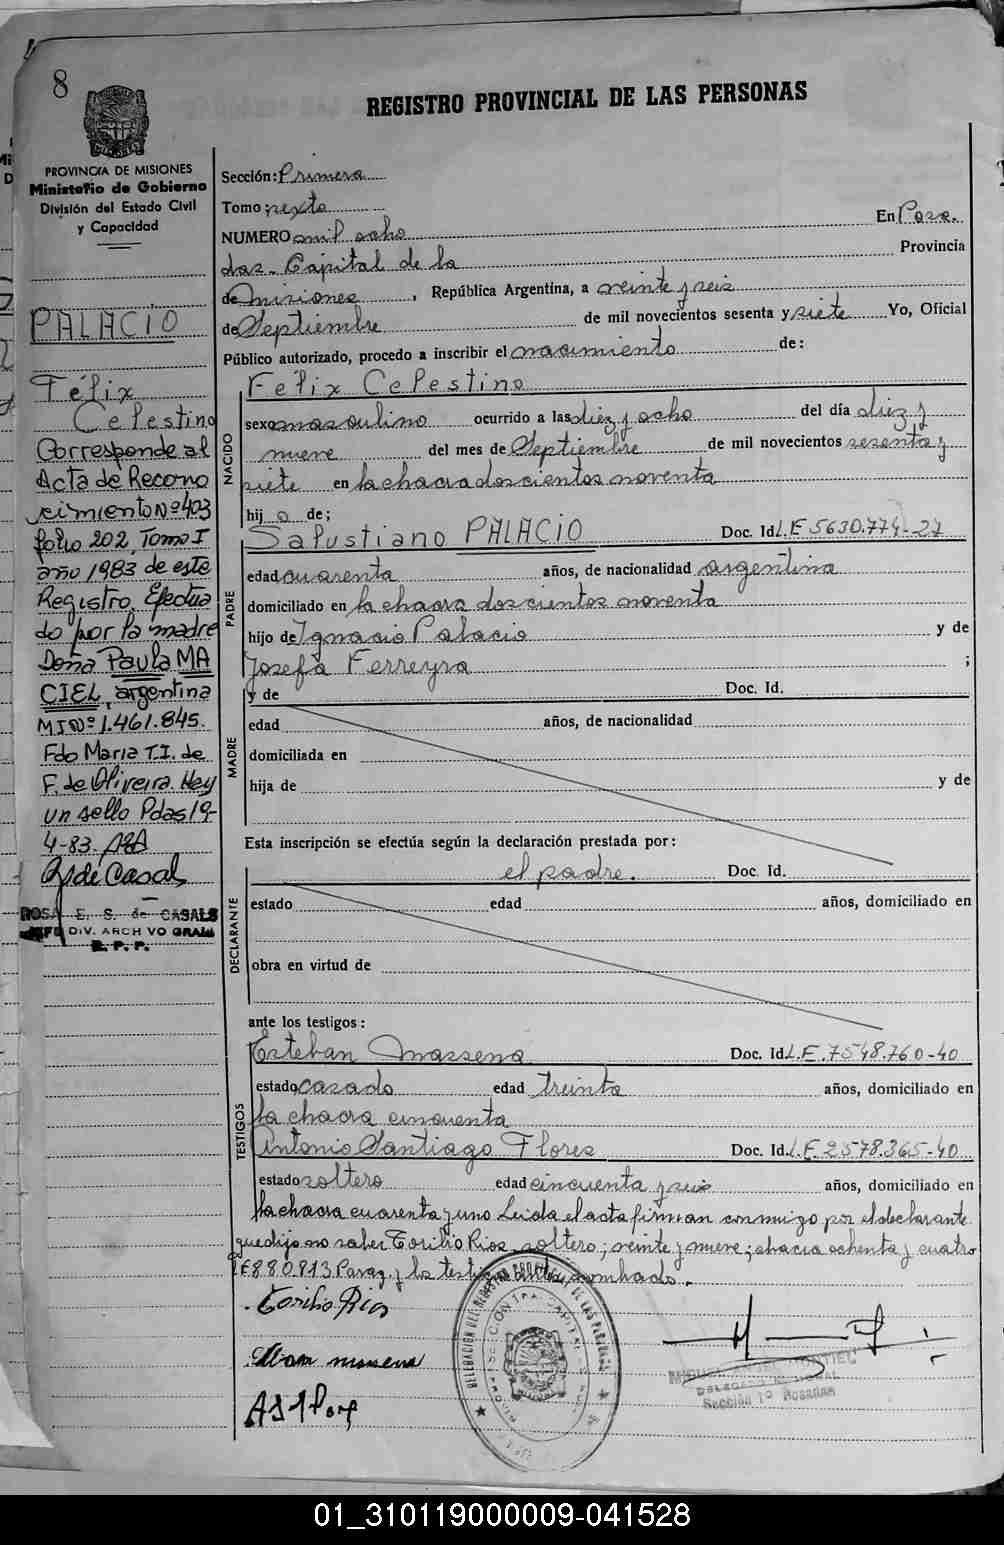 8
REGISTRO PROVINCIAL DE LAS PERSONAS
PROVINCIA DE MISIONES
Ministerio de Gobierno
División del Estado Civil
y Capacidad
PALACIO
Félix
Celestino
Corresponde al
Acta de Recono
cimiento Nº 403
folio 202, Tomo I
año 1983 de este
Registro. Efectua
do por la madre
Doña Paula MA
CIEL, argentina
MI Nº 1.461.845.
Fdo Maria T.I. de
F. de Oliveira. Hay
un sello Pdas 19-
4-83.
R. de Casals
ROSA E. S. de CASALS
JEFE DIV. ARCHIVO GRAL
R. P. P.
Sección: Primera
Tomo: sexto
NUMERO mil ocho En Posa-
das - Capital de la Provincia
de Misiones, República Argentina, a veinte y seis
de Septiembre de mil novecientos sesenta y siete Yo, Oficial
Público autorizado, procedo a inscribir el nacimiento de:
NACIDO
Félix Celestino
sexo masculino ocurrido a las diez y ocho del día diez y
nueve del mes de Septiembre de mil novecientos sesenta y
siete en la chacra doscientos noventa
hijo de;
PADRE
Salustiano PALACIO Doc. Id. L.E 5630.774-27
edad cuarenta años, de nacionalidad argentina
domiciliado en la chacra doscientos noventa
hijo de Ignacio Palacio y de
Josefa Ferreyra ;
MADRE
y de Doc. Id.
edad años, de nacionalidad
domiciliada en
hija de y de
Esta inscripción se efectúa según la declaración prestada por:
DECLARANTE
el padre. Doc. Id.
estado edad años, domiciliado en
obra en virtud de
ante los testigos:
TESTIGOS
Esteban Massena Doc. Id. L.E. 7548.760-40
estado casado edad treinta años, domiciliado en
la chacra cincuenta
Antonio Santiago Flores Doc. Id. L.E. 2578.365-40
estado soltero edad cincuenta y seis años, domiciliado en
la chacra cuarenta y uno Leida el acta firman conmigo por el declarante
que dijo no saber Toribio Rios, soltero; veinte y nueve; chacra ochenta y cuatro
880813 Parag. y los testigos antes nombrado.
Toribio Rios
massena
A S Flores
DELEGACION DEL REGISTRO PROVINCIAL DE LAS PERSONAS
Sección 1º Posadas
01_310119000009-041528